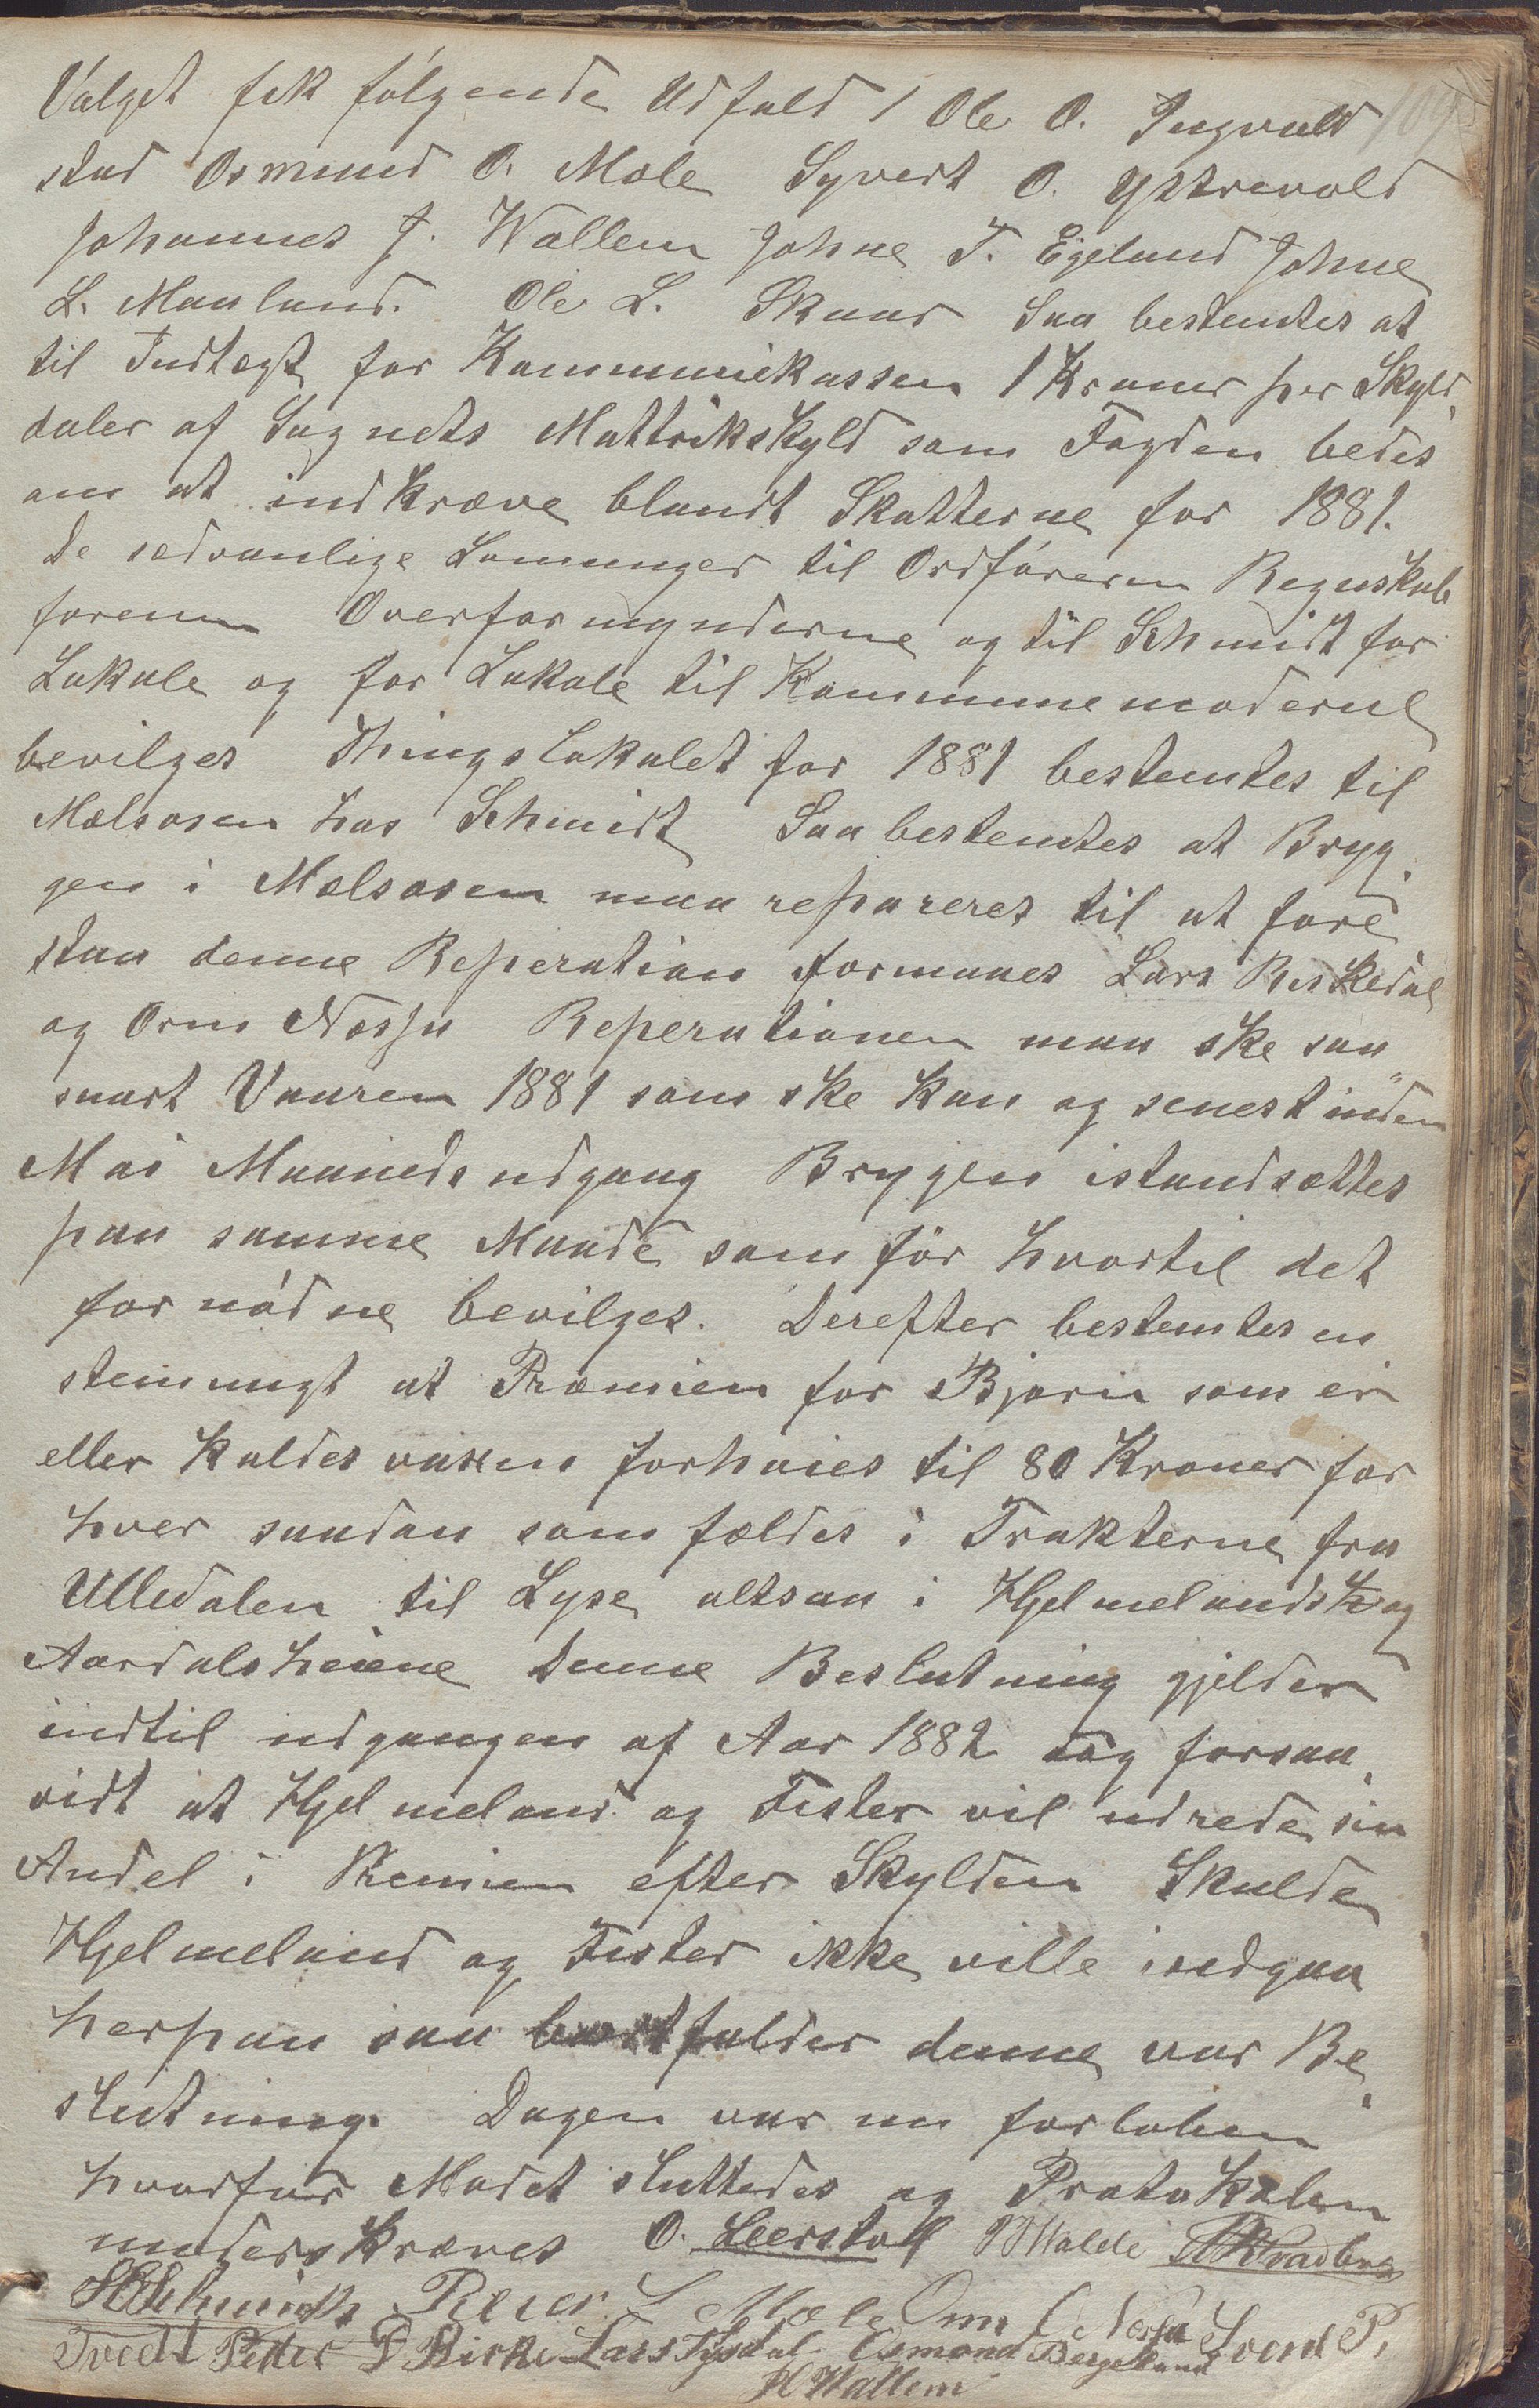 Valget fik følgende Udfald / Ole O. Ingvald
stad Osmund O. Mæle Syvert O. Ystrevold
Johannes J. Wallem Johne T. Egeland Johne
L. Mauland. Ole L. Skaar Saa bestemtes at
til Indtægt for Kommunekassen 1 Kroner per Skyld,
daler af Sognets Mattrikskyld som Fogden bedes
om at indkræve blandt Skatterne for 1881.
De sædvanlige Lønninger til Ordføreren Regnskab
føreren Overformynderne og til Schmidt for
Lokale og for Lokale til Kommunemøderne
bevilges Thingslokalet for 1881 bestemtes til
Mælsosen hos Schmidt Saa bestemtes at Bryg,
gen i Mælsosen maa repareres til at fore
staa denne Reperation formanes Lars Riskedal
og Orm Nessa Reperationen maa ske saa
snart Vaaren 1881 som ske kan og senest inden
Mai Maaneds udgang Brygjen istandsættes
paa samme Maade som før hvortil det
fornødne bevilges. Derefter bestemtes en
stemmigt at Præmien for Bjørn som er
eller kaldes vaxen forhøies til 80 Kroner for
hver saadan som fældes i Trakterne fra
Ulledalen til Lyse altsaa i Hjelmelands og
Aardalsheiene Denne Beslutning gjelder
indtil udgangen af Aar 1882 og forsaa,
vidt at Hjelmeland og Fister vil udrede sin
Andel i Premien efter Skylden Skulde
Hjelmeland og Fister ikke ville indgaa
herpaa saa bortfalder denne vor Be,
slutning. Dagen var nu forløben
hvorfor Mødet sluttedes og Protokolen
underskreves O. Leerstad Walde
H Schmidt Reier L Mæle Orm Nessa Svend P.
Tvedt Peder P Kirke Lars Tysdal Osmond Bergeland
H Wallem